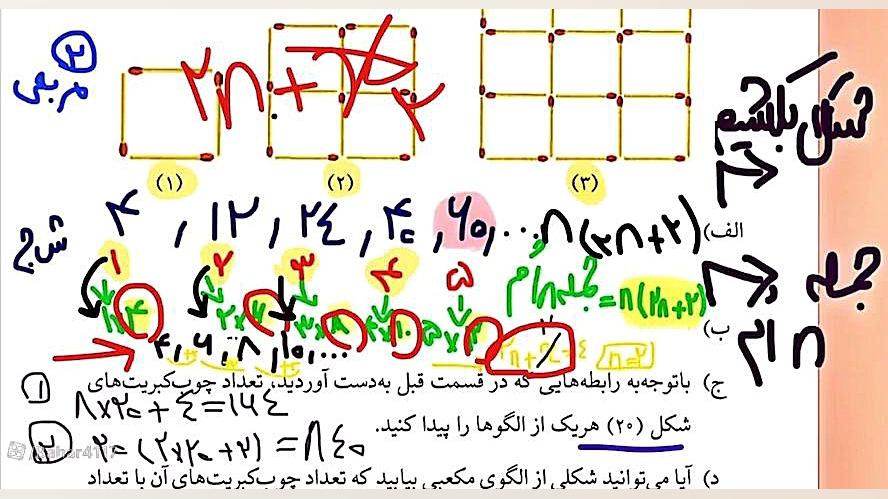 ۲
مربعی
۲n+۲
(۱) (۲) (۳)
شکل بکشیم
الف) ۴ , ۱۲ , ۲۴ , ۴۰ , ۶۰ , ... n(۲n+۲)
۱ ۲ ۳ ۴ ۵ جمله nام = n(۲n+۲)
جمله
n ام
ب)
۴, ۶, ۸, ۱۰, ...
ج) باتوجه‌به رابطه‌هایی که در قسمت قبل به‌دست آوردید، تعداد چوب‌کبریت‌های
۱ ۸×۲۰+۴=۱۶۴
شکل (۲۰) هریک از الگوها را پیدا کنید.
۲ ۲۰(۲×۲۰+۲)=۸۴۰
د) آیا می‌توانید شکلی از الگوی مکعبی بیابید که تعداد چوب‌کبریت‌های آن با تعداد